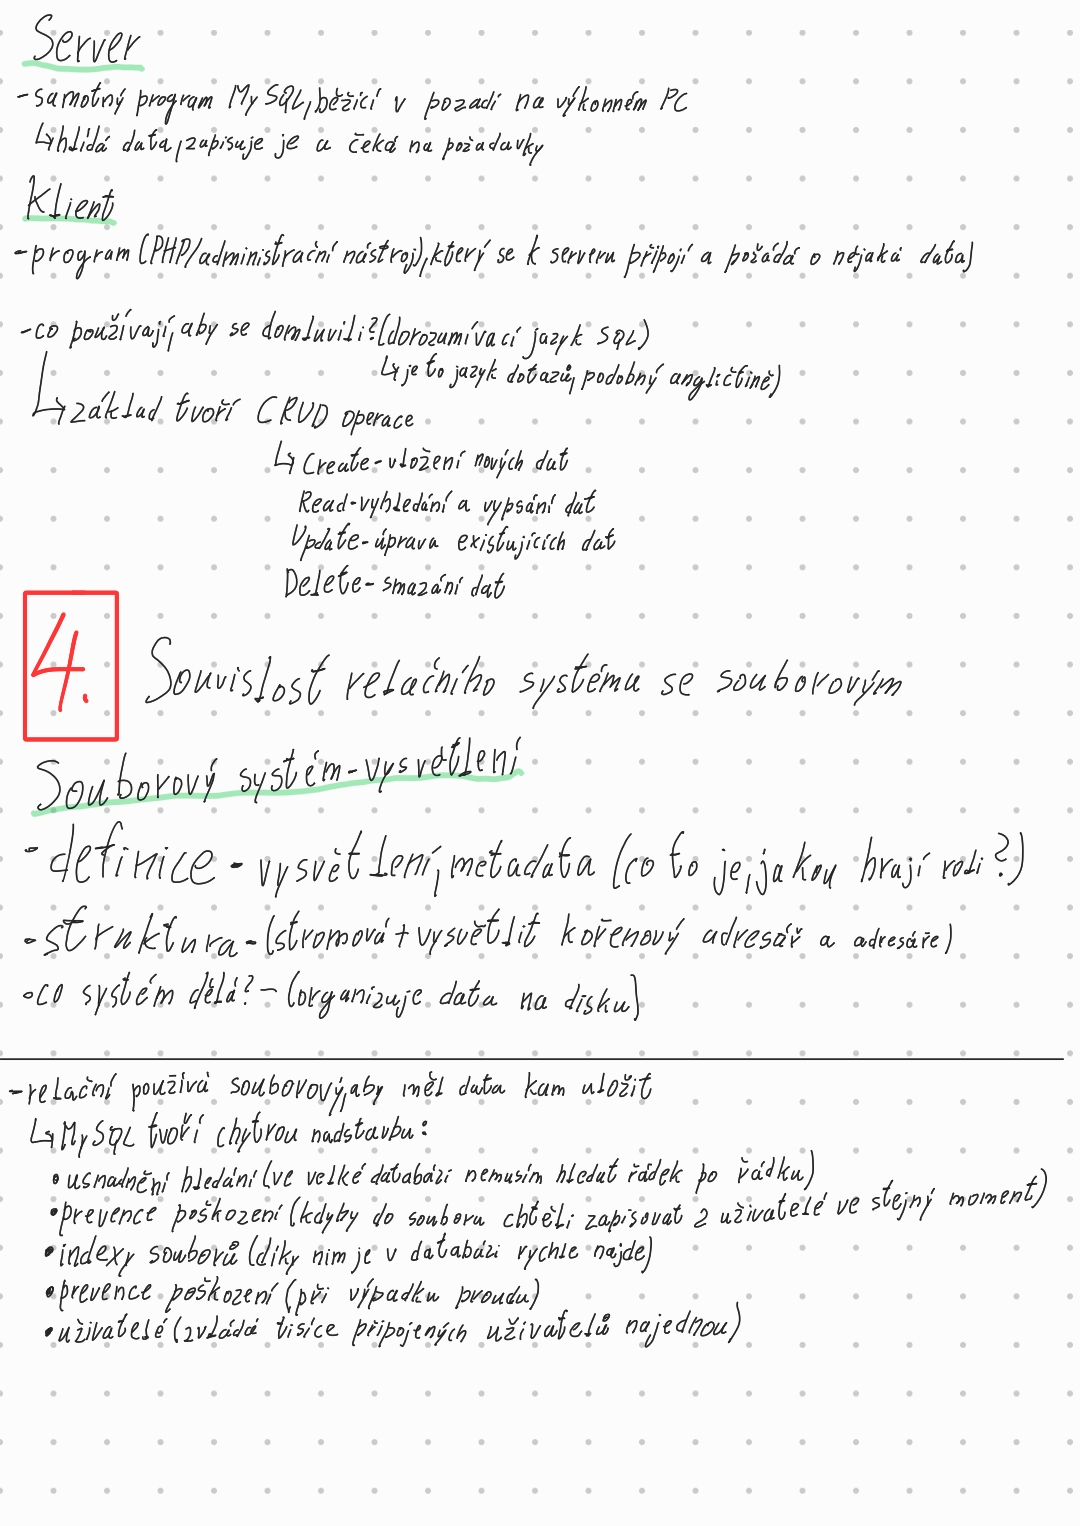 Server
-samotný program MySQL, běžící v pozadí na výkonném PC
↳hlídá data, zapisuje je a čeká na požadavky
Klient
-program (PHP/administrační nástroj), který se k serveru připojí a požádá o nějaká data)
-co používají, aby se domluvili? (dorozumívací jazyk SQL)
↳je to jazyk dotazů, podobný angličtině)
↳základ tvoří CRUD operace
↳Create-vložení nových dat
Read-vyhledání a vypsání dat
Update-úprava existujících dat
Delete-smazání dat
4. Souvislost relačního systému se souborovým
Souborový systém-vysvětlení
-definice-vysvětlení, metadata (co to je, jakou hrají roli?)
-struktura-(stromová+vysvětlit kořenový adresář a adresáře)
-co systém dělá?-(organizuje data na disku)
-relační používá souborový, aby měl data kam uložit
↳MySQL tvoří chytrou nadstavbu:
•usnadnění hledání (ve velké databázi nemusím hledat řádek po řádku)
•prevence poškození (kdyby do souboru chtěli zapisovat 2 uživatelé ve stejný moment)
•indexy souborů (díky nim je v databázi rychle najde)
•prevence poškození (při výpadku proudu)
•uživatelé (zvládá tisíce připojených uživatelů najednou)